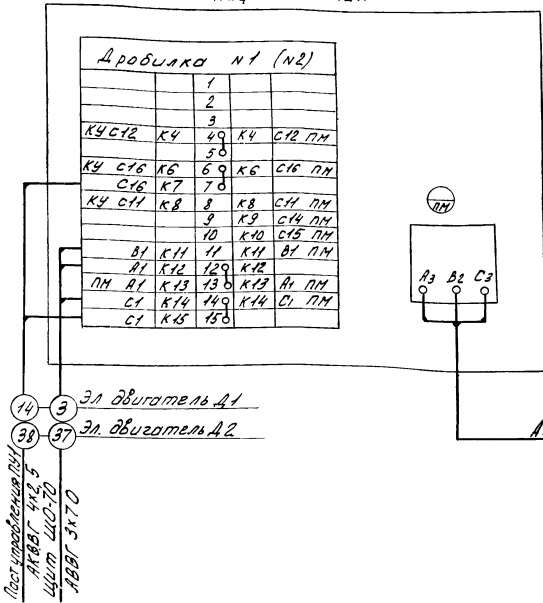 Дробилка №1 (№2)
1
2
3
КУ С12 К4 4 К4 С12 ПМ
5
КУ С16 К6 6 К6 С16 ПМ
С16 К7 7
КУ С11 К8 8 К8 С11 ПМ
9 К9 С14 ПМ
10 К10 С15 ПМ
В1 К11 11 К11 В1 ПМ
А1 К12 12 К12
ПМ А1 К13 13 К13 А1 ПМ
С1 К14 14 К14 С1 ПМ
С1 К15 15
ПМ
А3 В2 С3
14 3 Эл двигатель Д1
38 37 Эл. двигатель Д2
Пост управления ПУ1
АКВВГ 4х2,5
Щит ЩО-70
АВВГ 3х70
А